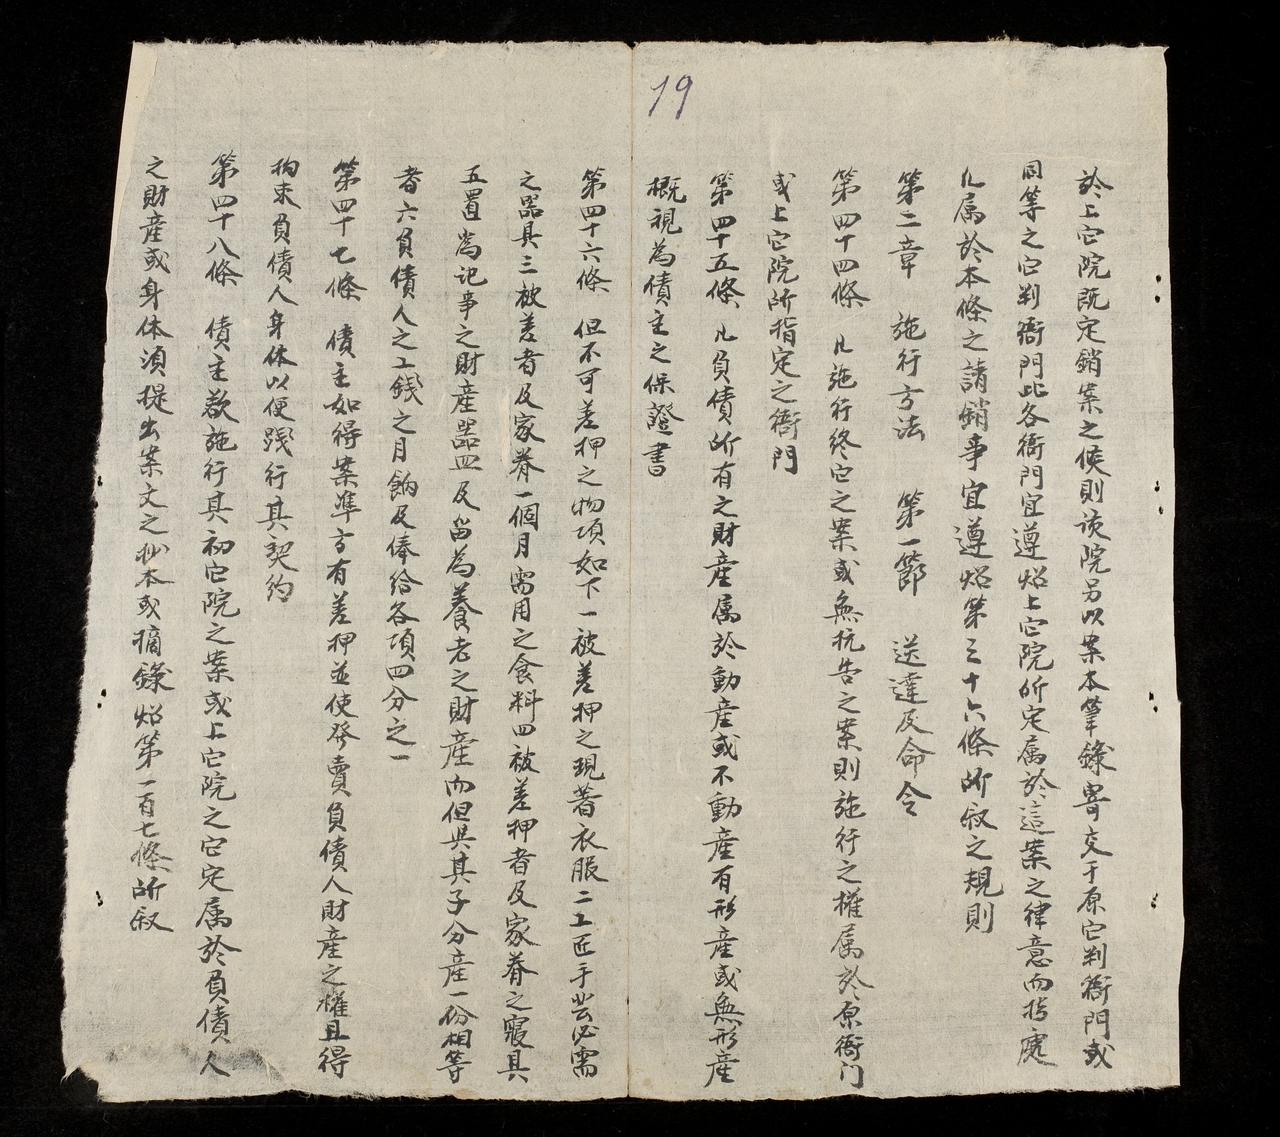 19
於上㝎院既定銷案之候則该院另以案本筆錄寄交于原㝎判衙門或
同等之㝎判衙門此各衙門宜遵炤上㝎院所定属於這案之律意而指處
凡属於本條之請銷事宜遵炤第三十六條所叙之規則
第二章 施行方法 第一節 送達及命令
第四十四條 凡施行終㝎之案或無抗告之案則施行之權属於原衙门
或上㝎院所指定之衙門
第四十五條 凡負債所有之財産属於動産或不動産有形産或無形産
概視為債主之保證書
第四十六條 但不可差押之物項如下一被差押之現著衣服二工匠手芸必需
之器具三被差者及家眷一個月需用之食料四被差押者及家眷之寢具
五置為記事之財産器皿及留為養老之財産而但與其子分産一份相等
者六負債人之工錢之月餉及俸給各項四分之一
第四十七條 債主如得案準方有差押並使發賣負債人財産之權且得
拘束負債人身体以便踐行其契約
第四十八條 債主欲施行其初㝎院之案或上㝎院之㝎定属於負債人
之財産或身体須提出案文之抄本或摘錄炤第一百七條所叙